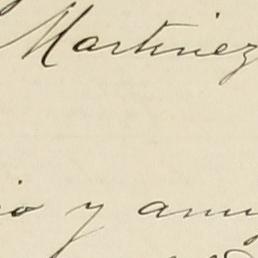 Martinez
io y amig